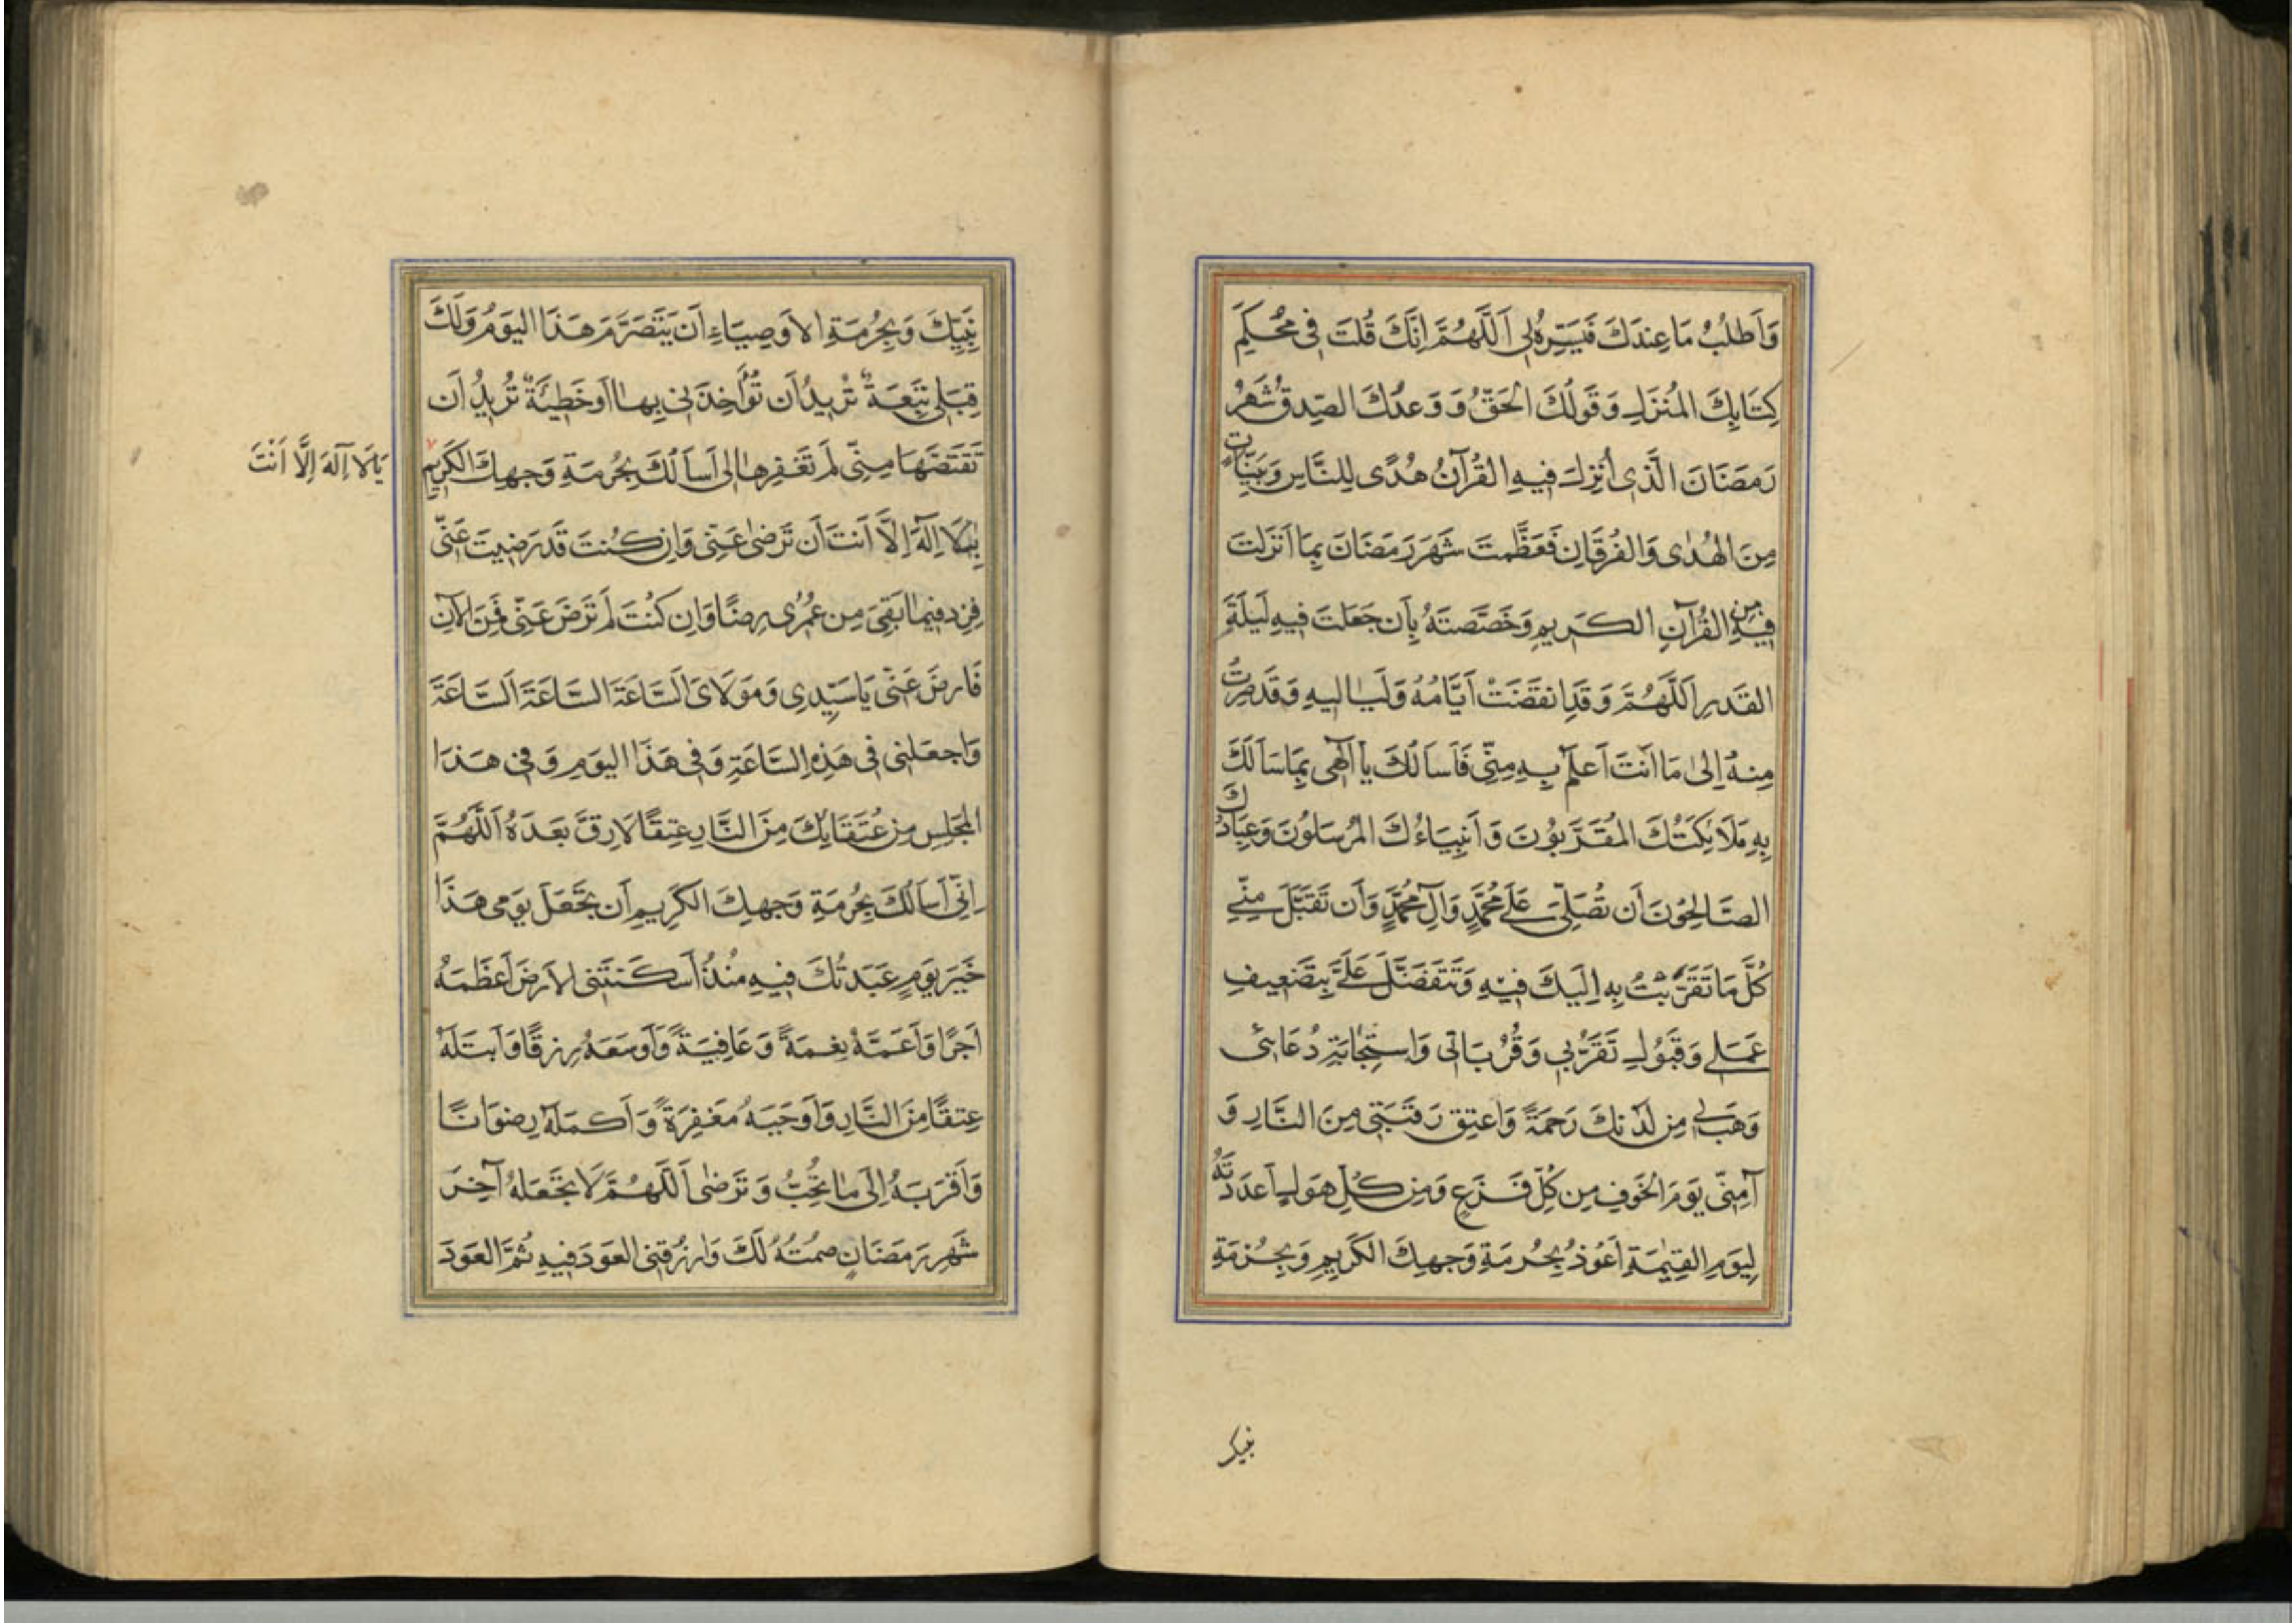 وَاَطلُبُ مَا عِندَكَ فَيَسِّرهُ لِى اَللَّهُمَّ اِنَّكَ قُلتَ فِى مُحكَمِ
كِتَابِكَ المُنزَلِ وَقَولُكَ الحَقُّ وَ وَعدُكَ الصِّدقُ شَهرُ
رَمَضَانَ الَّذِى اُنزِلَ فِيهِ القُرآنُ هُدًى لِلنَّاسِ وَبَيِّنَاتٍ
مِنَ الهُدٰى وَالفُرقَانِ فَعَظَّمتَ شَهرَ رَمَضَانَ بِمَا اَنزَلتَ
فِيهِ مِنَ القُرآنِ الكَرِيمِ وَخَصَّصتَهُ بِاَن جَعَلتَ فِيهِ لَيلَةَ
القَدرِ اَللَّهُمَّ وَ قَدِ انقَضَتْ اَيَّامُهُ وَلَيَالِيهِ وَقَد صِرتُ
مِنهُ اِلىٰ مَا اَنتَ اَعلَمُ بِهِ مِنِّى فَاَسأَلُكَ يَا اِلٰهِى بِمَا سَأَلَكَ
بِهِ مَلَائِكَتُكَ المُقَرَّبُونَ وَ اَنبِيَاءُكَ المُرسَلُونَ وَعِبَادُكَ
الصَّالِحُونَ اَن تُصَلِّىَ عَلَى مُحَمَّدٍ وَآلِ مُحَمَّدٍ وَاَن تَقَبَّلَ مِنِّى
كُلَّ مَا تَقَرَّبتُ بِهِ اِلَيكَ فِيهِ وَتَتَفَضَّلَ عَلَىَّ بِتَضعِيفِ
عَمَلِى وَقَبُولِ تَقَرُّبِى وَقُرُبَاتِى وَاستِجَابَةِ دُعَائِى
وَهَب لِى مِن لَدُنكَ رَحمَةً وَاعتِق رَقَبَتِى مِنَ النَّارِ وَ
آمِنِّى يَومَ الخَوفِ مِن كُلِّ فَزَعٍ وَمِن كُلِّ هَولٍ اَعدَدتَهُ
لِيَومِ القِيٰمَةِ اَعُوذُ بِحُرمَةِ وَجهِكَ الكَرِيمِ وَبِحُرمَةِ
نبيك
نَبِيِّكَ وَبِحُرمَةِ الاَوصِيَاءِ اَن يَتَصَرَّمَ هَذَا اليَومُ وَلَكَ
قِبَلِى تَبِعَةٌ تُرِيدُ اَن تُؤَاخِذَنِى بِهَا اَو خَطِيئَةٌ تُرِيدُ اَن
تَقتَصَّهَا مِنِّى لَم تَغفِرهَا لِى اَسأَلُكَ بِحُرمَةِ وَجهِكَ الكَرِيمِ
يَا لَا اِلٰهَ اِلَّا اَنْتَ
بِلَا اِلٰهَ اِلَّا اَنتَ اَن تَرضىٰ عَنِّى وَاِن كُنتَ قَد رَضِيتَ عَنِّى
فَزِد فِيمَا بَقِىَ مِن عُمُرِى رِضًا وَاِن كُنتَ لَم تَرضَ عَنِّى فَمِنَ الآنِ
فَارضَ عَنِّى يَا سَيِّدِى وَمَولَاىَ اَلسَّاعَةَ السَّاعَةَ اَلسَّاعَةَ
وَاجعَلنِى فِى هَذِهِ السَّاعَةِ وَفِى هَذَا اليَومِ وَ فِى هَذَا
المَجلِسِ مِن عُتَقَائِكَ مِنَ النَّارِ عِتقًا لَا رِقَّ بَعدَهُ اَللَّهُمَّ
اِنِّى اَسأَلُكَ بِحُرمَةِ وَجهِكَ الكَرِيمِ اَن تَجعَلَ يَومِى هَذَا
خَيرَ يَومٍ عَبَدتُكَ فِيهِ مُنذُ اَسكَنتَنِى الاَرضَ اَعظَمَهُ
اَجرًا وَاَعَمَّهُ نِعمَةً وَ عَافِيَةً وَاَوسَعَهُ رِزقًا وَاَبتَلَهُ
عِتقًا مِنَ النَّارِ وَاَوجَبَهُ مَغفِرَةً وَ اَكمَلَهُ رِضوَانًا
وَاَقرَبَهُ اِلَى مَا تُحِبُّ وَ تَرضىٰ اَللَّهُمَّ لَا تَجعَلهُ آخِرَ
شَهرِ رَمَضَانٍ صُمتُهُ لَكَ وَارزُقنِى العَودَ فِيهِ ثُمَّ العَودَ